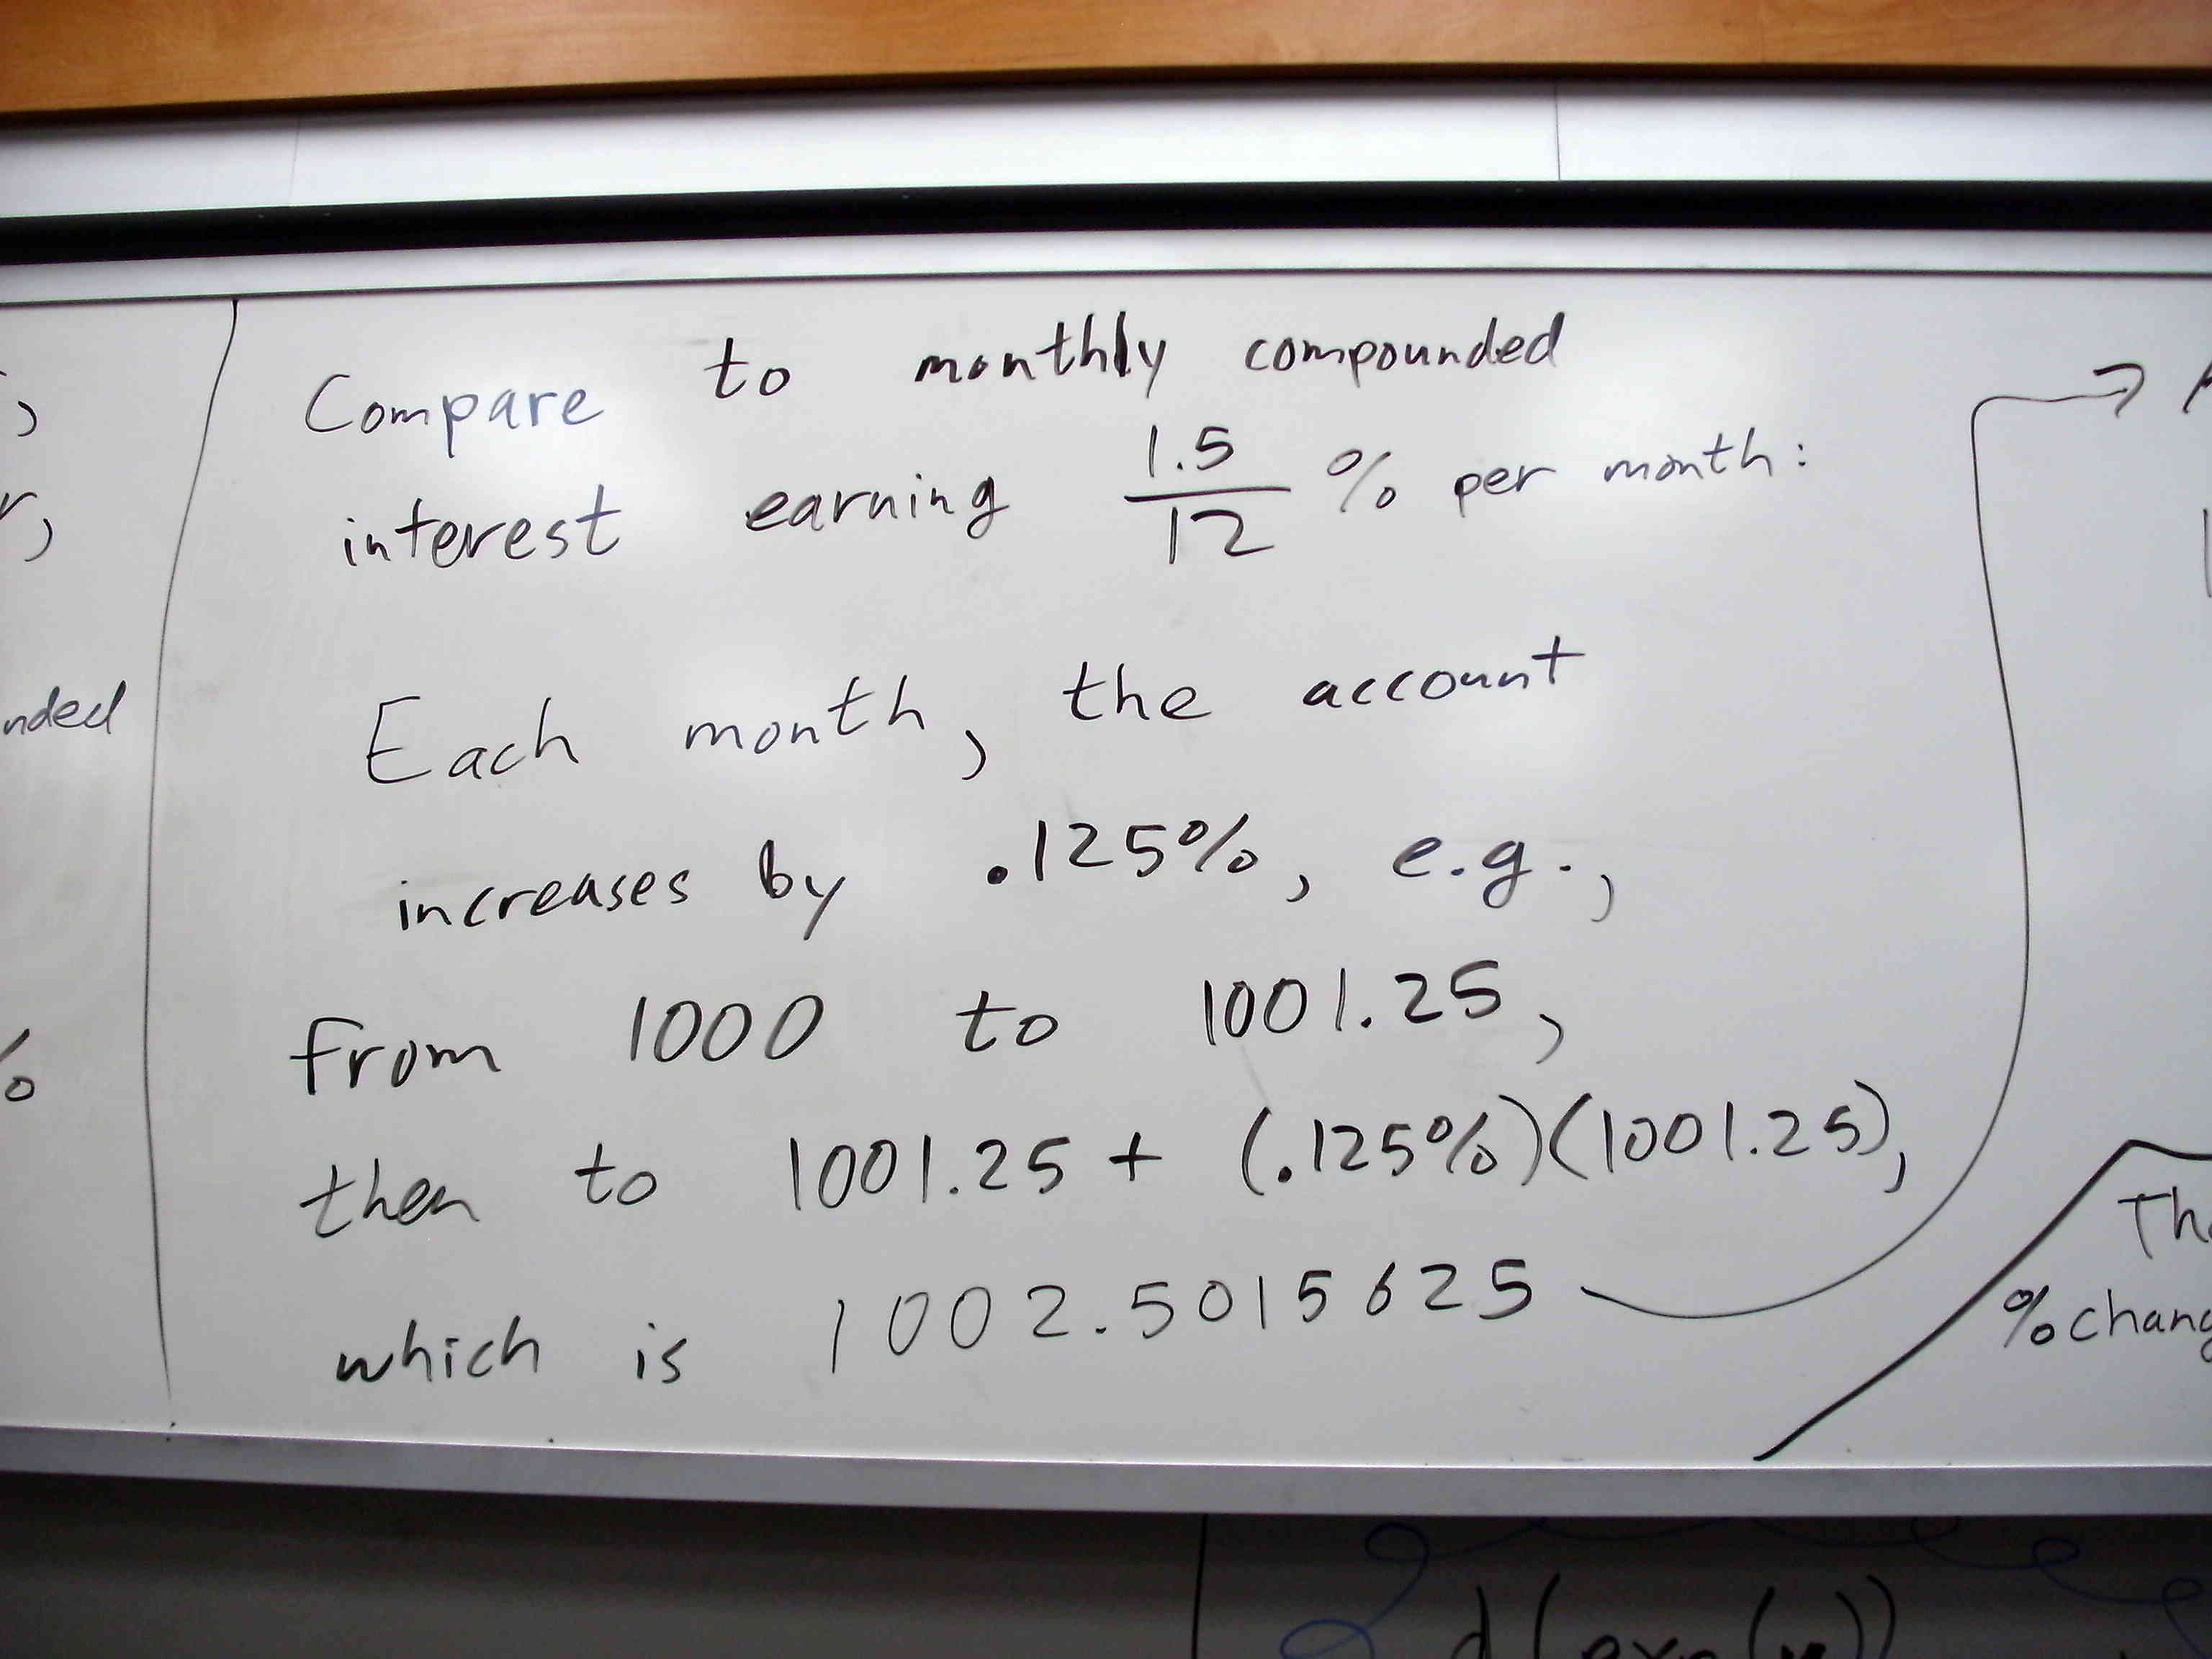 Compare to monthly compounded
interest earning 1.5/12 % per month:
Each month, the account
increases by .125%, e.g.,
from 1000 to 1001.25,
then to 1001.25 + (.125%)(1001.25),
which is 1002.5015625
nded
%
% chang
d(exp(x))